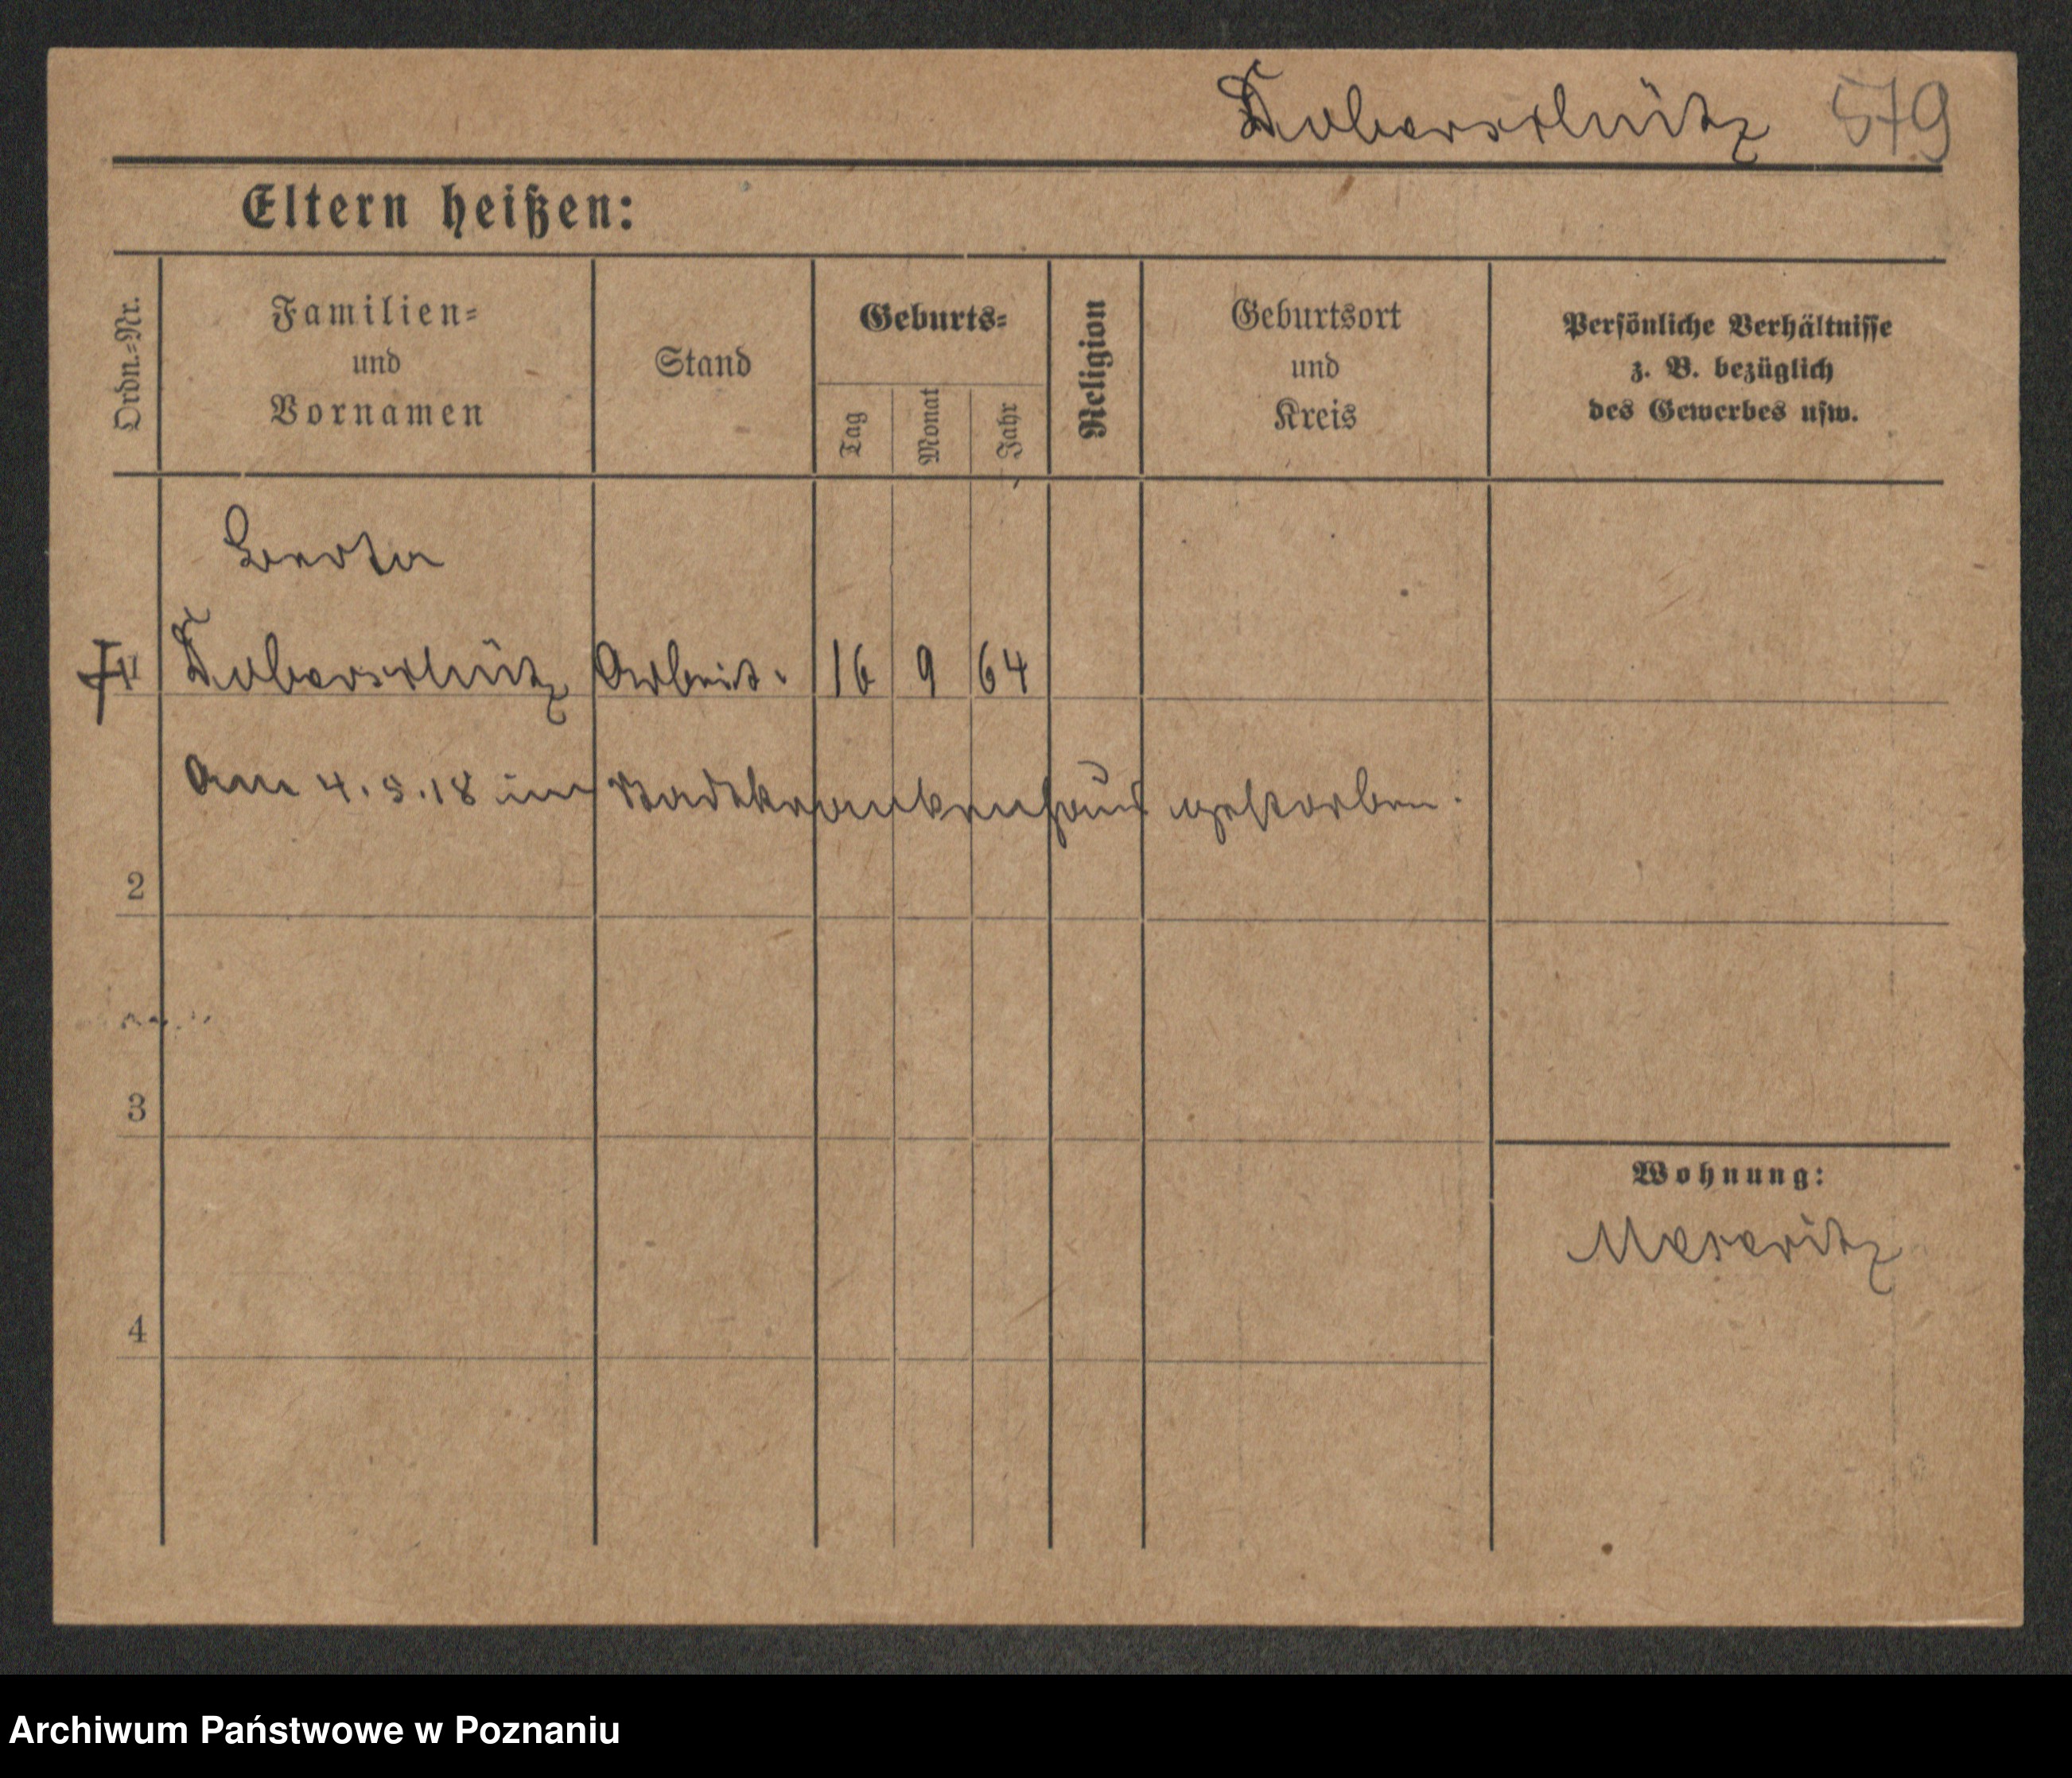 Doberschütz 579
Eltern heißen:
Ordn.-Nr.
Familien- und Vornamen
Stand
Geburts-
Tag
Monat
Jahr
Religion
Geburtsort und Kreis
Persönliche Verhältnisse
z. B. bezüglich
des Gewerbes usw.
Berta
1 Doberschütz Arbeit. 16 9 64
Am 4.5.18 im Stadtkrankenhaus gestorben.
2
3
Wohnung:
Meseritz
4
Archiwum Państwowe w Poznaniu